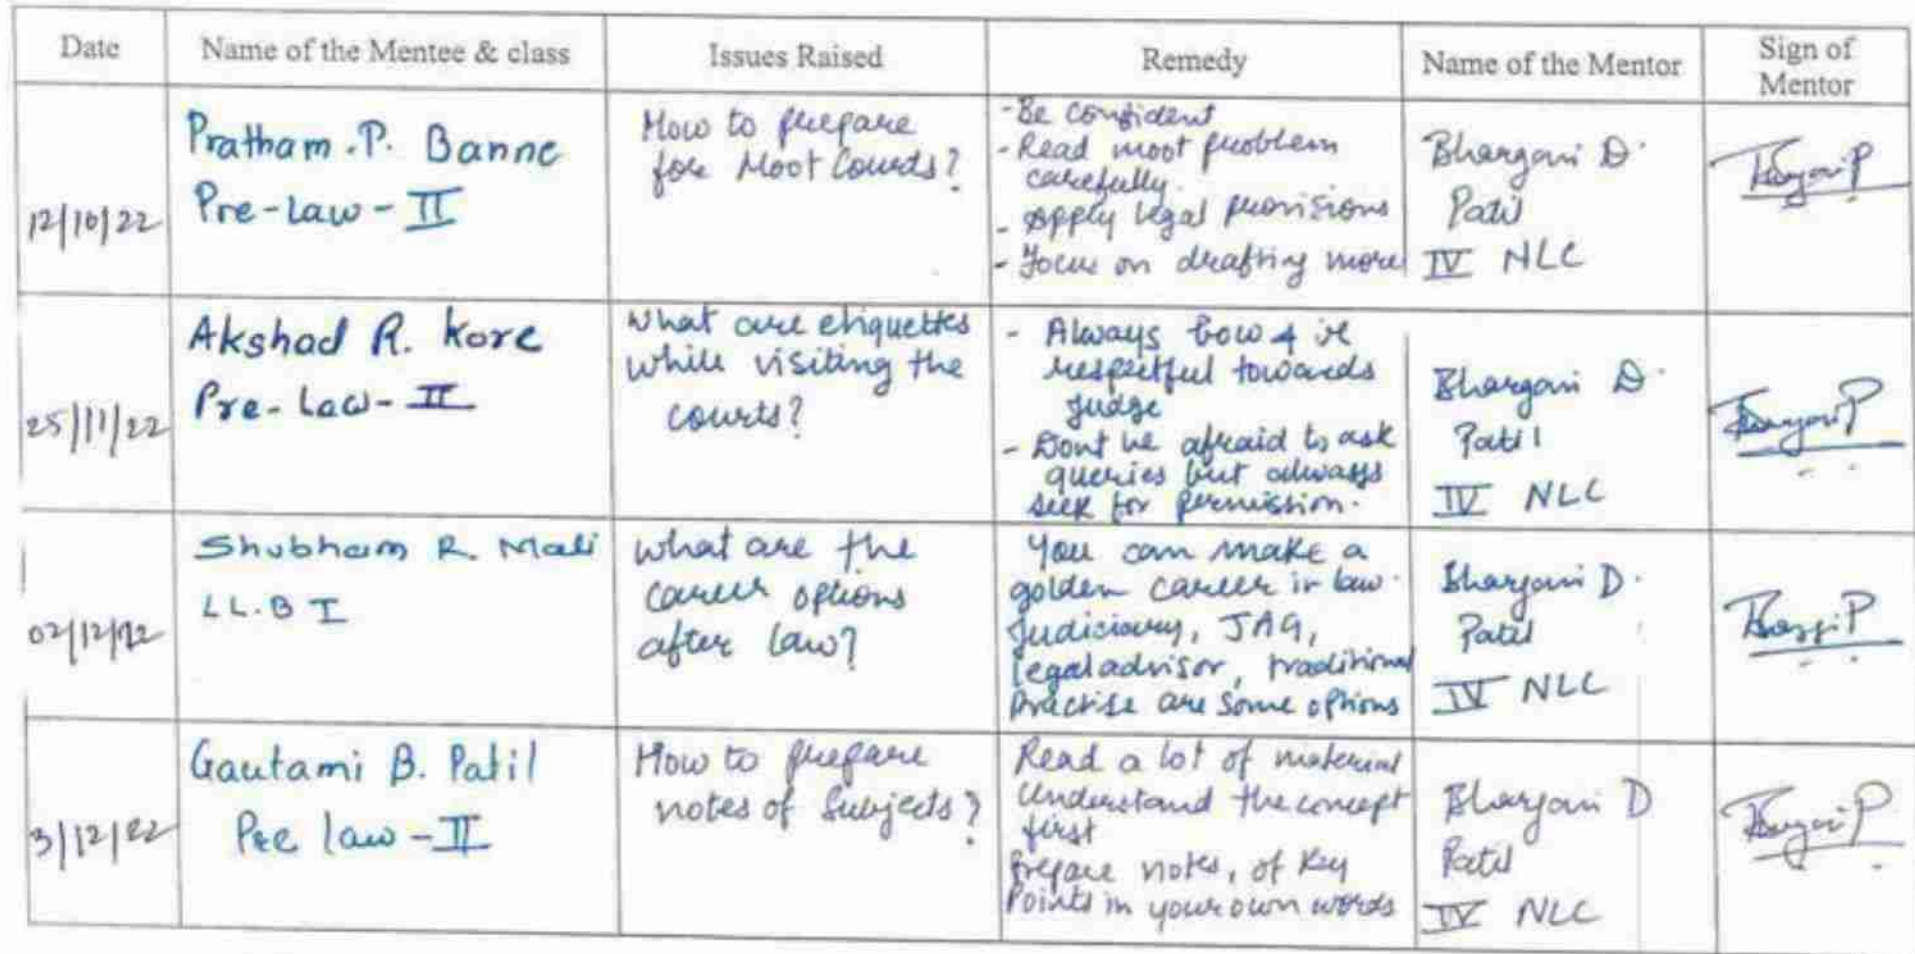 Date
Name of the Mentee & class
Issues Raised
Remedy
Name of the Mentor
Sign of
Mentor
12/10/22
Pratham .P. Banne
Pre-Law-II
How to prepare
for Moot Courts?
-Be confident
-Read moot problem
carefully.
- Apply legal provisions
- Focus on drafting more
Bhargavi D.
Patil
IV NLC
25/11/22
Akshad R. Kore
Pre-Law-II
What are etiquettes
while visiting the
courts?
- Always bow & be
respectful towards
judge
- Dont be afraid to ask
queries but always
seek for permission.
Bhargavi D.
Patil
IV NLC
02/12/22
Shubham R. Mali
LL.B I
What are the
career options
after law?
You can make a
golden career in law.
Judiciary, JAG,
legal advisor, traditional
practise are some options
Bhargavi D.
Patil
IV NLC
3/12/22
Gautami B. Patil
Pre law-II
How to prepare
notes of Subjects?
Read a lot of material
Understand the concept
first
Prepare notes, of key
Points in your own words
Bhargavi D
Patil
IV NLC